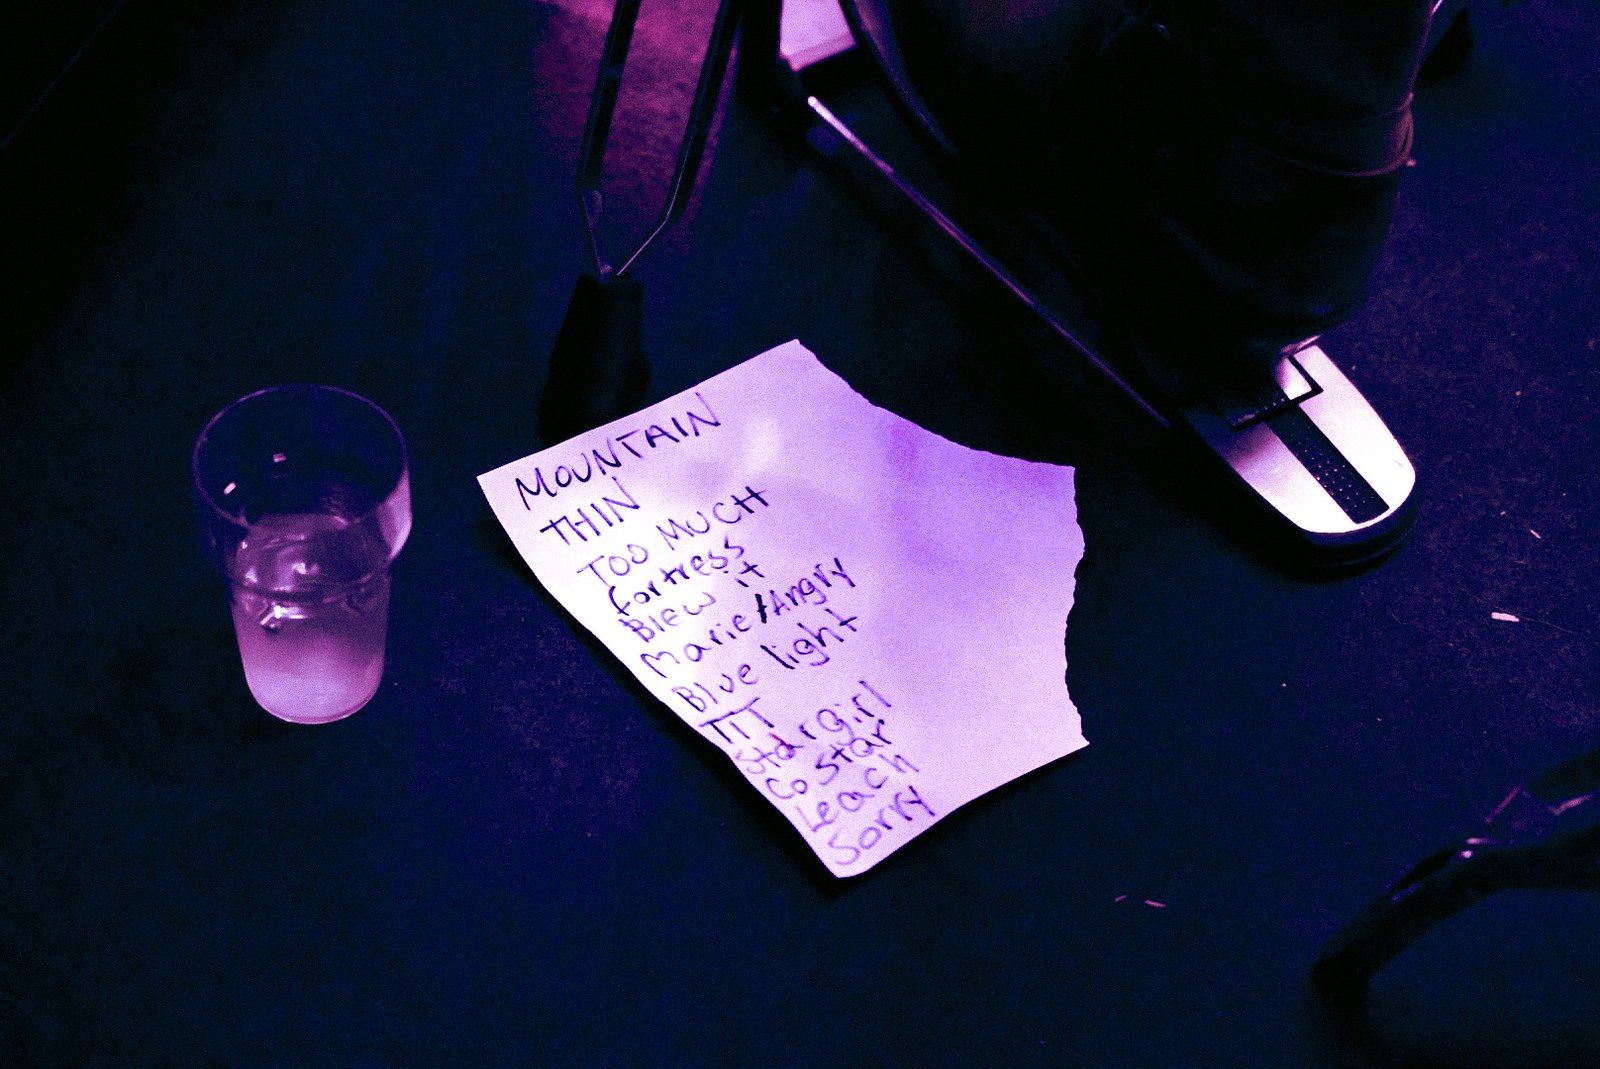 MOUNTAIN
THIN
TOO MUCH
fortress
Blew it
Marie/Angry
Blue light
TIT
Stargirl
Co star
Leach
Sorry